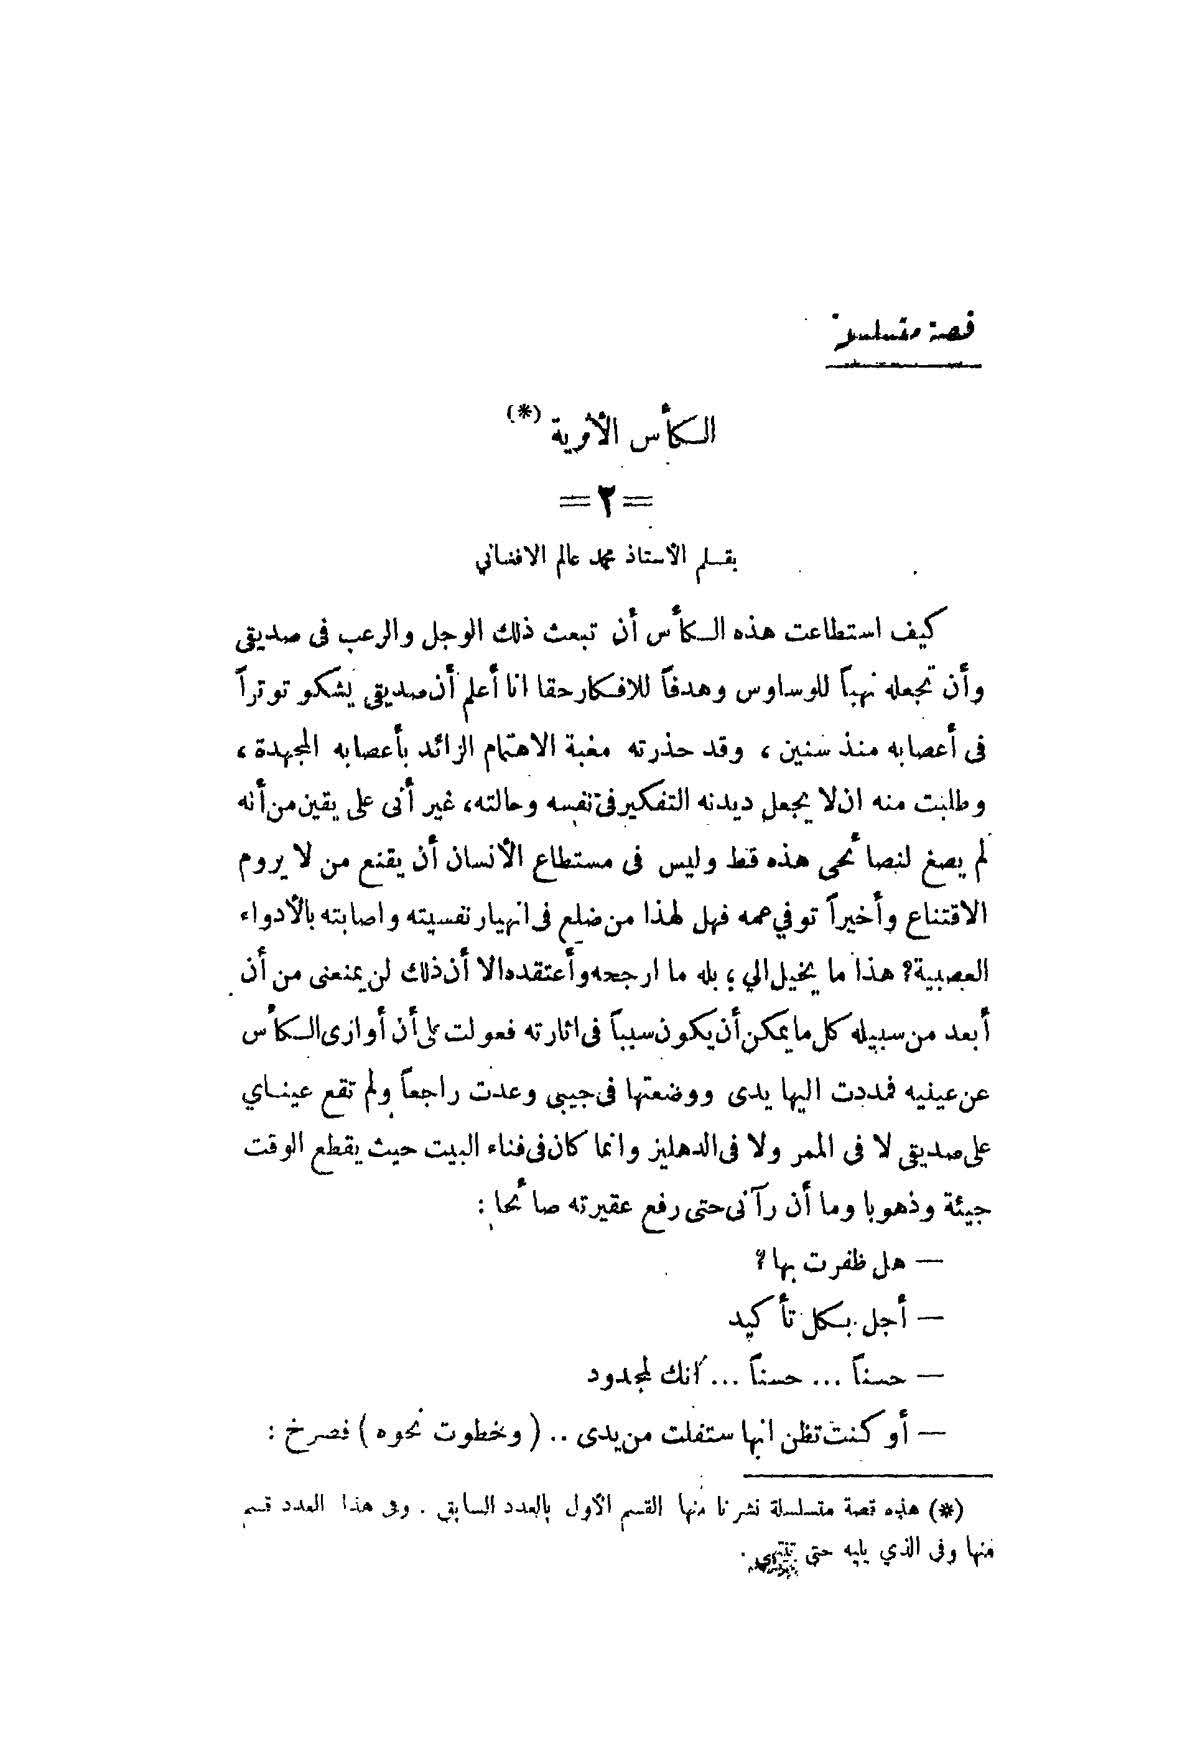 قصة متسلسلة
الكأس الأثرية (*)
= ٢ =
بقلم الأستاذ محمد عالم الافغاني
كيف استطاعت هذه الكأس أن تبعث ذلك الوجل والرعب فى صديقى
وأن تجعله نهباً للوساوس وهدفاً للافكار حقا انا أعلم أن صديقي يشكو توتراً
فى أعصابه منذ سنين ، وقد حذرته مغبة الاهتمام الزائد بأعصابه المجهدة ،
وطلبت منه ان لا يجعل ديدنه التفكير فى نفسه وحالته، غير أنى على يقين من أنه
لم يصغ لنصائحى هذه قط وليس فى مستطاع الأنسان أن يقنع من لا يروم
الاقتناع وأخيراً توفي عمه فهل لهذا من ضلع فى انهيار نفسيته واصابته بالأدواء
العصبية؟ هذا ما يخيل الي ؛ بله ما ارجحه وأعتقده الا أن ذلك لن يمنعنى من أن
أبعد من سبيله كل ما يمكن أن يكون سبباً فى اثارته فعولت على أن أوازى الكأس
عن عينيه فمددت اليها يدى ووضعتها فى جيبى وعدت راجعاً ولم تقع عيناي
على صديقى لا فى الممر ولا فى الدهليز وانما كان فى فناء البيت حيث يقطع الوقت
جيئة وذهوبا وما أن رآنى حتى رفع عقيرته صائحا :
— هل ظفرت بها ؟
— أجل بكل تأكيد
— حسناً ... حسناً ... انك لمجدود
— أو كنت تظن انها ستفلت من يدى .. ( وخطوت نحوه ) فصرخ :
(*) هذه قصة متسلسلة نشرنا منها القسم الأول بالعدد السابق . وفى هذا العدد قسم
منها وفى الذي يليه حتى تنتهى .